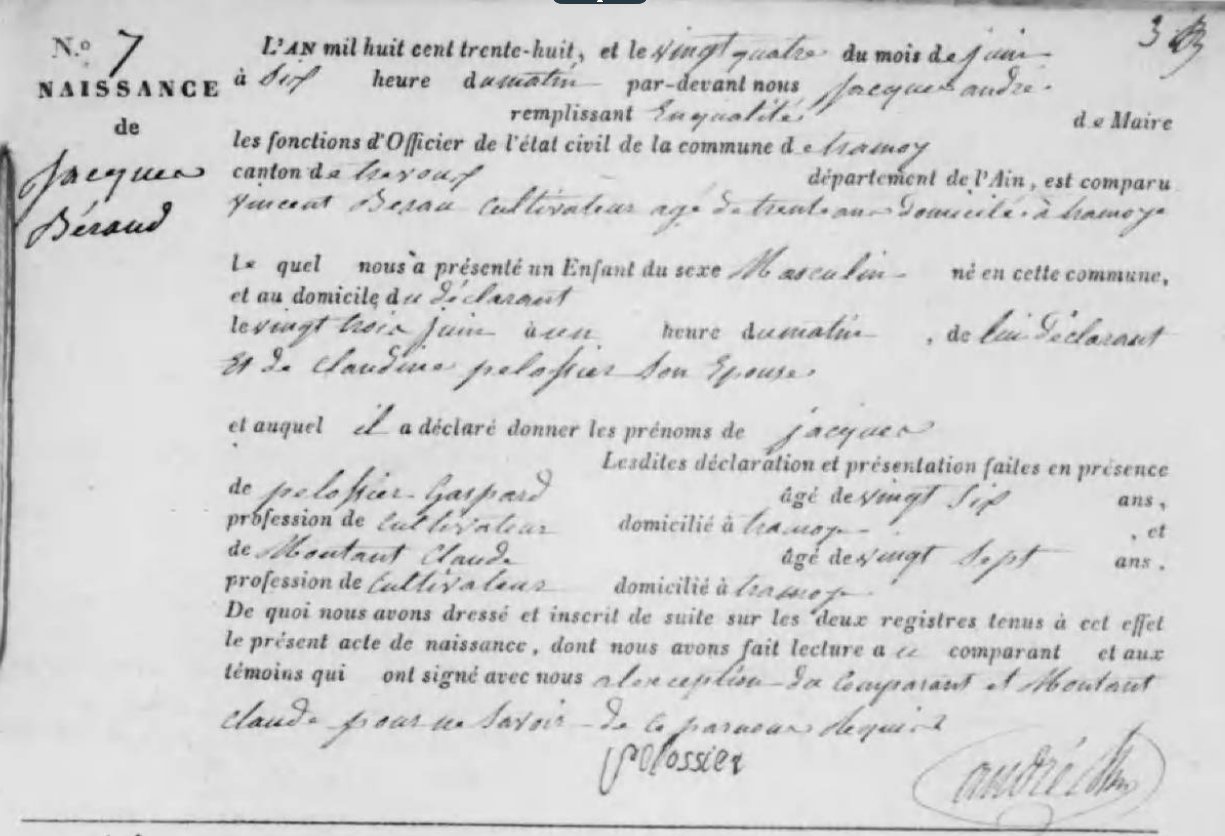 N.o 7
NAISSANCE
de
Jacques
Béraud
3
L'AN mil huit cent trente-huit, et le vingt quatre du mois de juin
à six heure du matin par-devant nous jacques andré
remplissant En qualité de Maire
les fonctions d'Officier de l'état civil de la commune de tramoy
canton de trevoux département de l'Ain, est comparu
vincent Berau cultivateur agé de trente ans domicilié à tramoye
Le quel nous a présenté un Enfant du sexe Masculin né en cette commune,
et au domicile du déclarant
le vingt trois juin à un heure du matin, de lui déclarant
Et de claudine pelossier son Epouse
et auquel il a déclaré donner les prénoms de jacques
Lesdites déclaration et présentation faites en présence
de pelossier Gaspard âgé de vingt six ans,
profession de cultivateur domicilié à tramoye, et
de Moutant Claude âgé de vingt sept ans,
profession de Cultivateur domicilié à tramoye
De quoi nous avons dressé et inscrit de suite sur les deux registres tenus à cet effet
le présent acte de naissance, dont nous avons fait lecture a u comparant et aux
témoins qui ont signé avec nous a lexception du Comparant et Moutant
claude pour ne savoir de ce par nous Requis
pelossier
andré